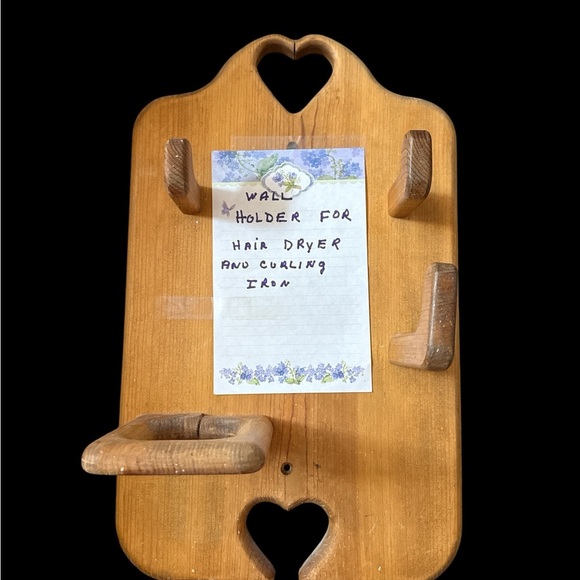 WALL
HOLDER FOR
HAIR DRYER
AND CURLING
IRON